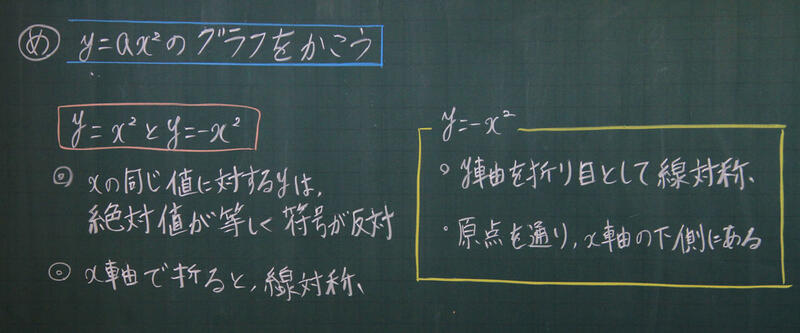 め y=ax²のグラフをかこう
y=x²とy=-x²
◎ xの同じ値に対するyは、
絶対値が等しく符号が反対
◎ x軸で折ると、線対称、
y=-x²
・y軸を折り目として線対称、
・原点を通り、x軸の下側にある